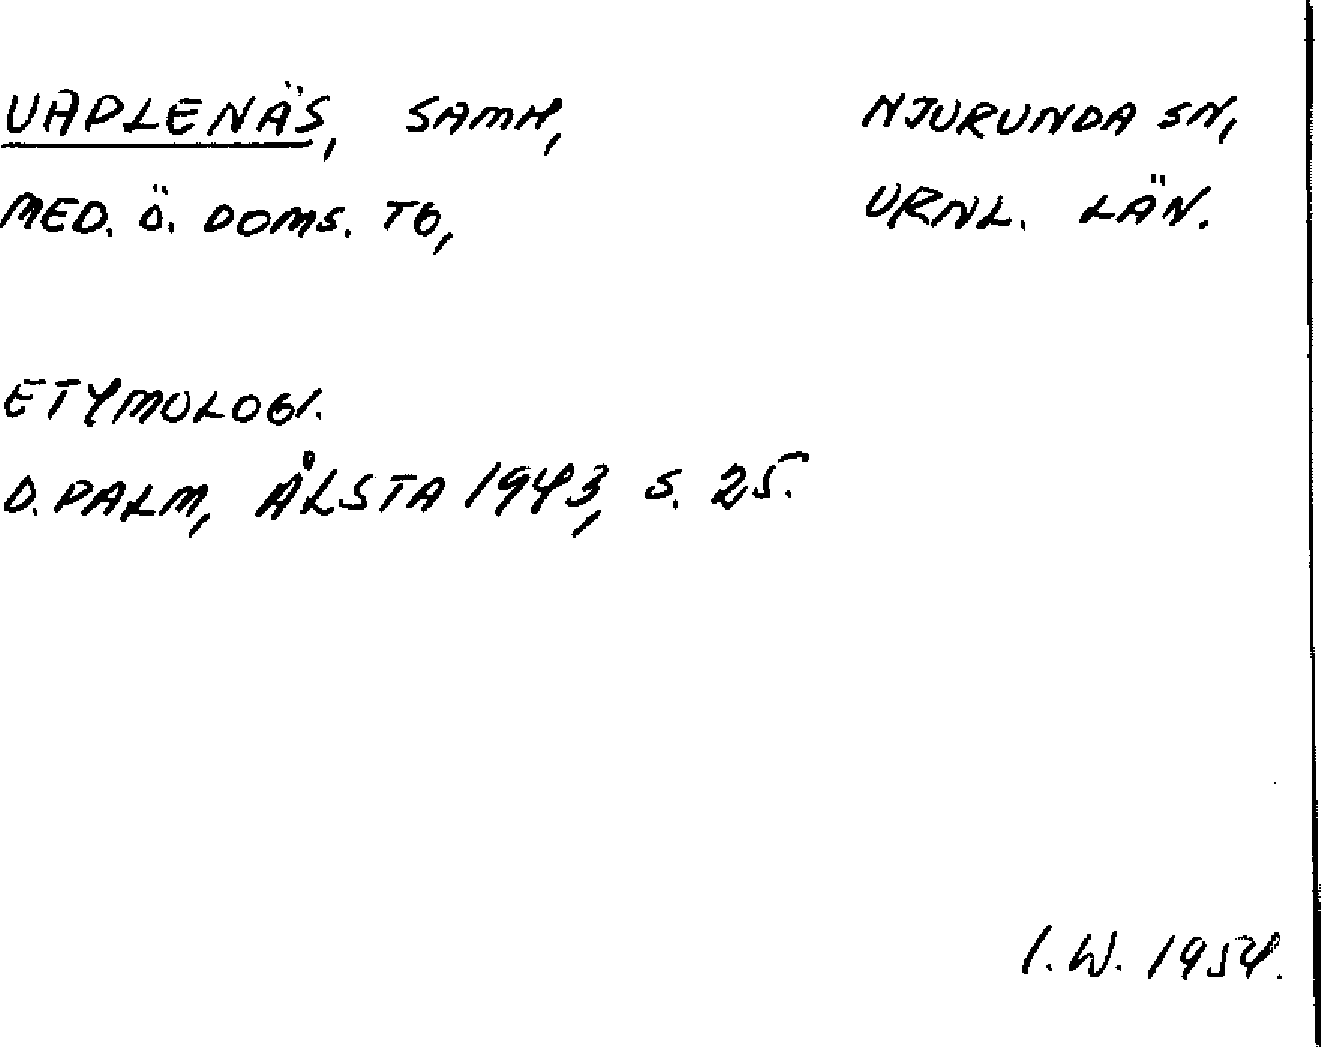 VAPLENÄS, SAMH, NJURUNDA SN,
MED. Ö. DOMS. TG, VRNL. LÄN.
ETYMOLOGI.
D. PALM, ÅLSTA 1943, S. 25.
I. W. 1954.